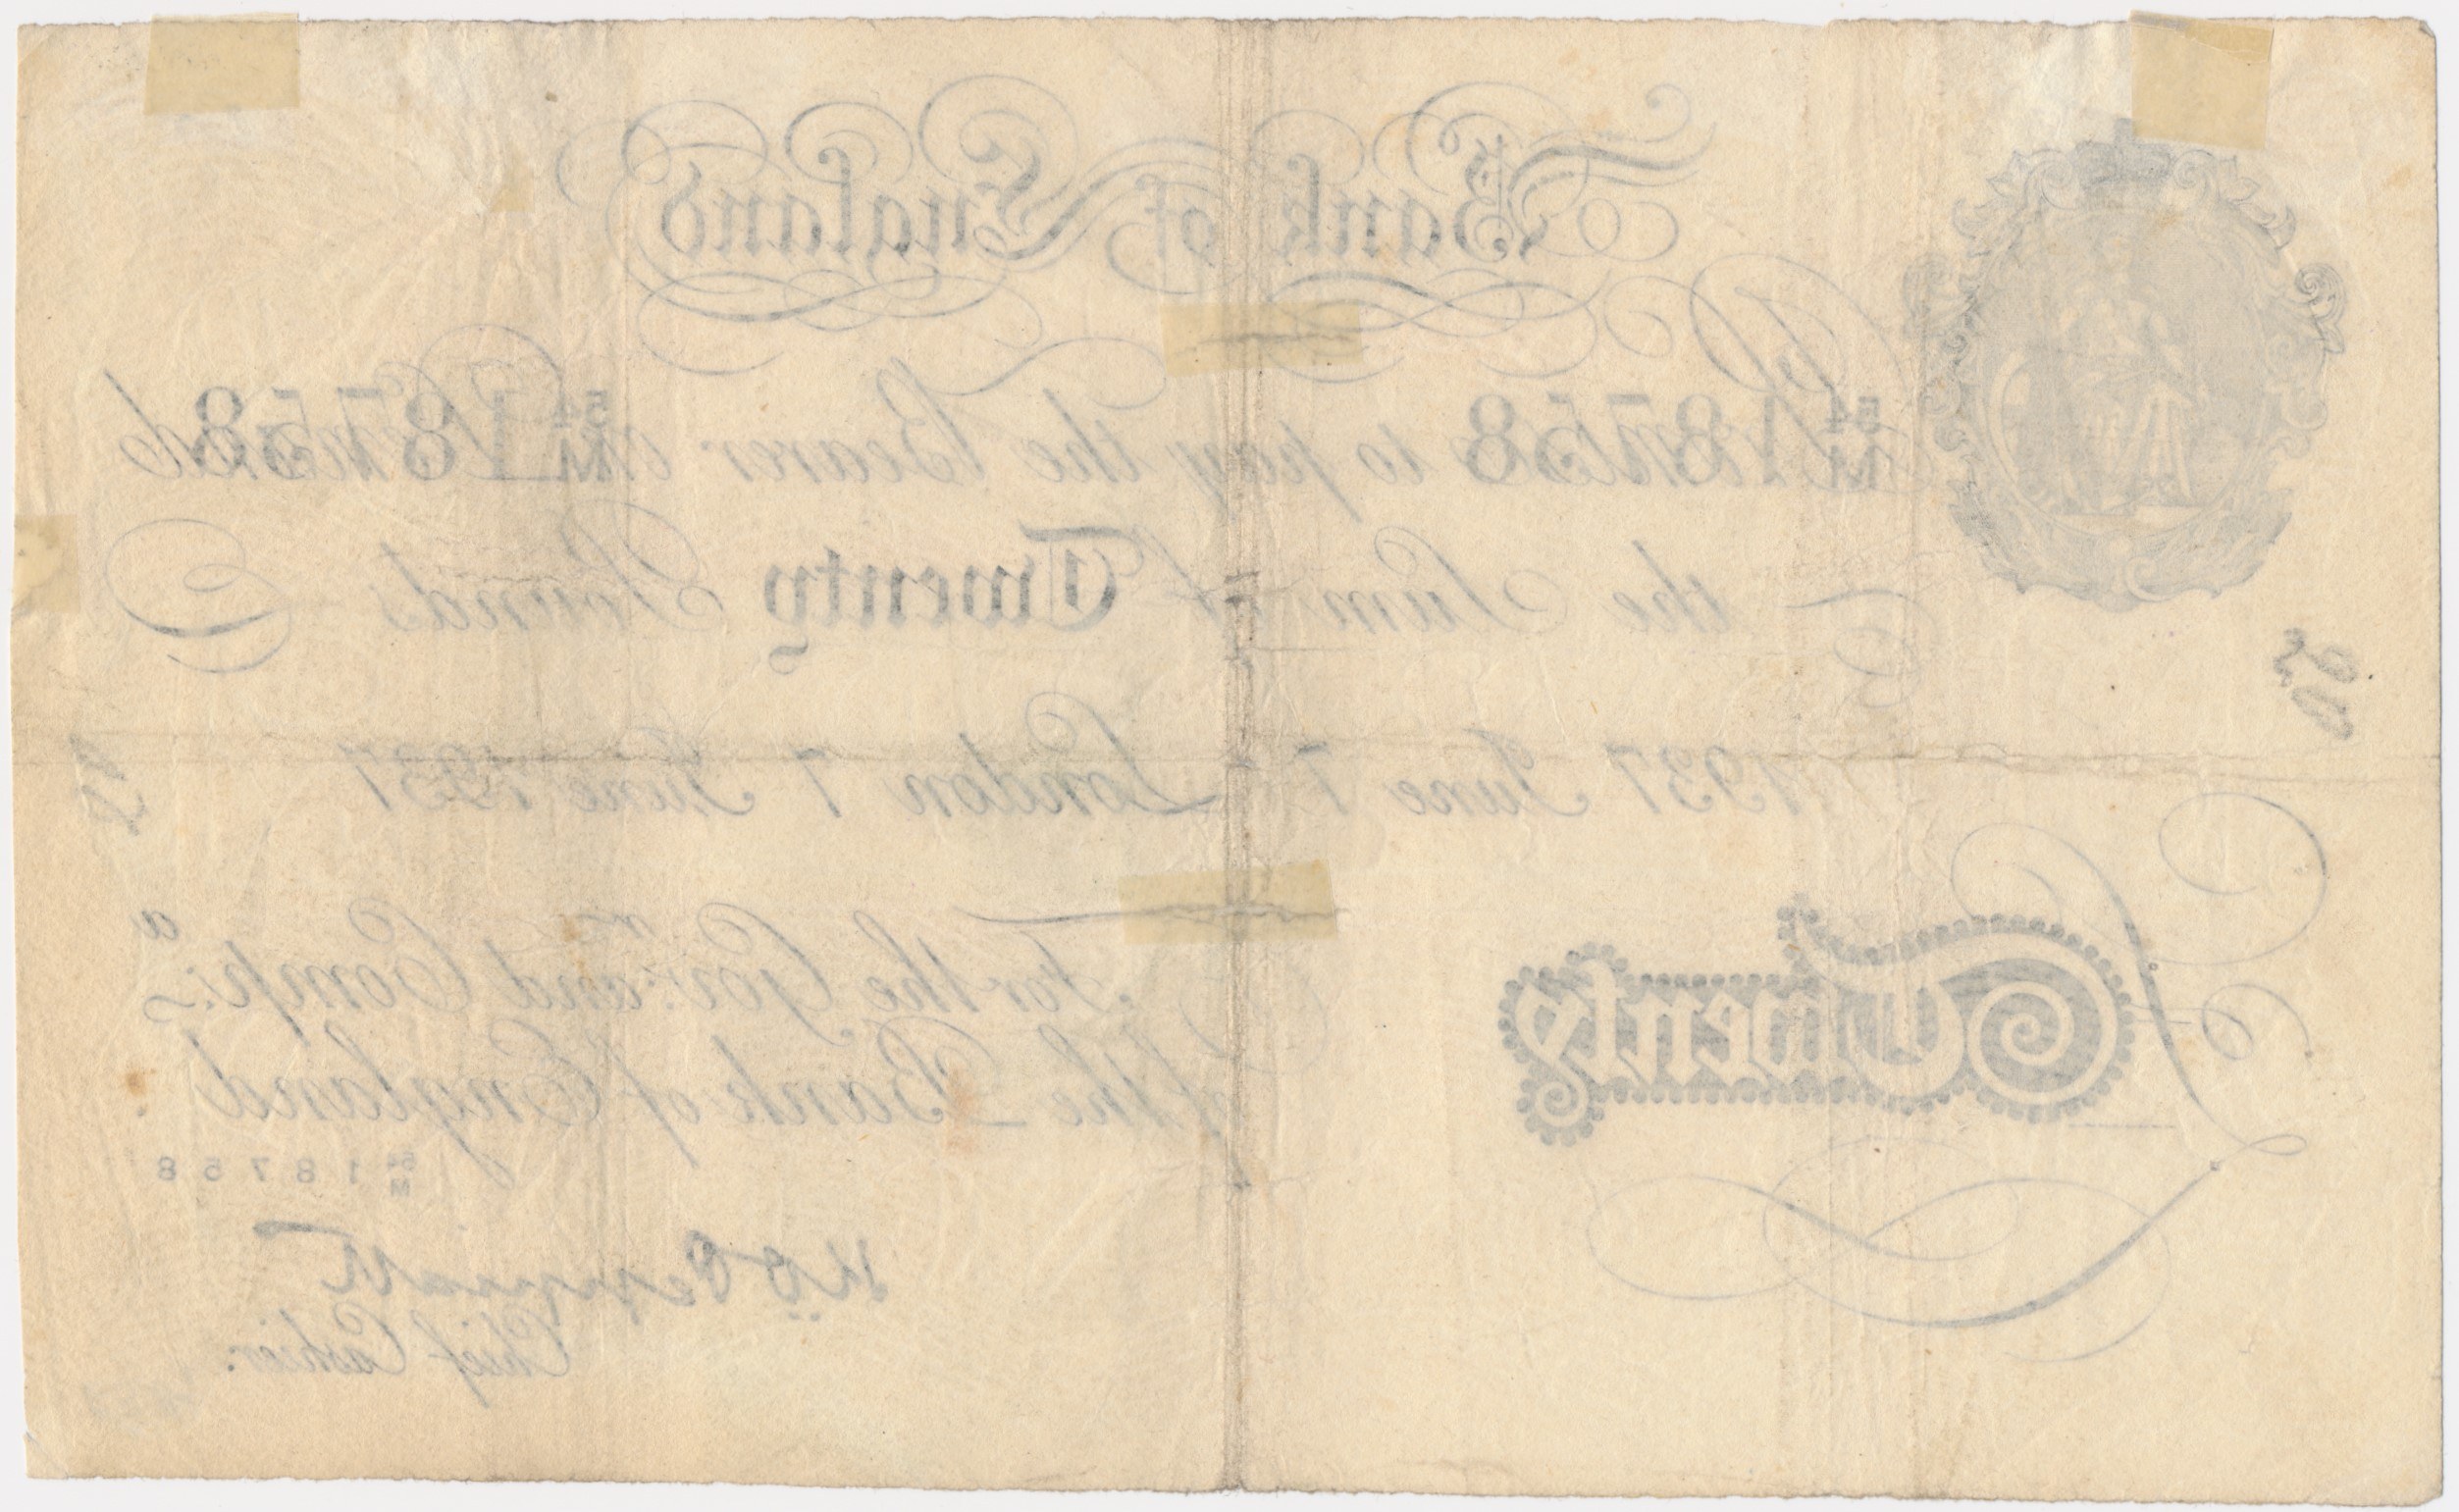 Bank of England
54/M 18758
54/M 18758
I Promise to pay the Bearer on Demand
the Sum of Twenty Pounds
1937 June 7 London 7 June 1937
For the Gov:r and Comp:a
of the Bank of England
Twenty
54/M 18758
Chief Cashier.